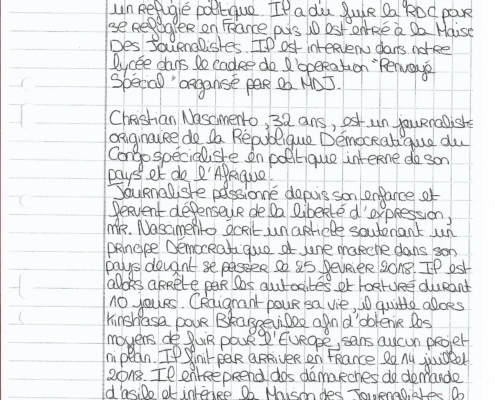 un réfugié politique. Il a du fuir la RDC pour
se réfugier en France puis il est entré à la Maison
Des Journalistes. Il est intervenu dans notre
lycée dans le cadre de l'opération "Renvoyé
Spécial" organisé par la MDJ.
Christian Nascimento, 32 ans, est un journaliste
originaire de la République Démocratique du
Congo spécialiste en politique interne de son
pays et de l'Afrique.
Journaliste passionné depuis son enfance et
fervent défenseur de la liberté d'expression,
mr. Nascimento écrit un article soutenant un
principe Démocratique et une marche dans son
pays devant se passer le 25 février 2018. Il est
alors arrêté par les autorités et torturé durant
10 jours. Craignant pour sa vie, il quitte alors
Kinshasa pour Brazzaville afin d'obtenir les
moyens de fuir pour l'Europe, sans aucun projet
ni plan. Il finit par arriver en France le 14 juillet
2018. Il entreprend des démarches de demande
d'asile et intègre la Maison des Journalistes le